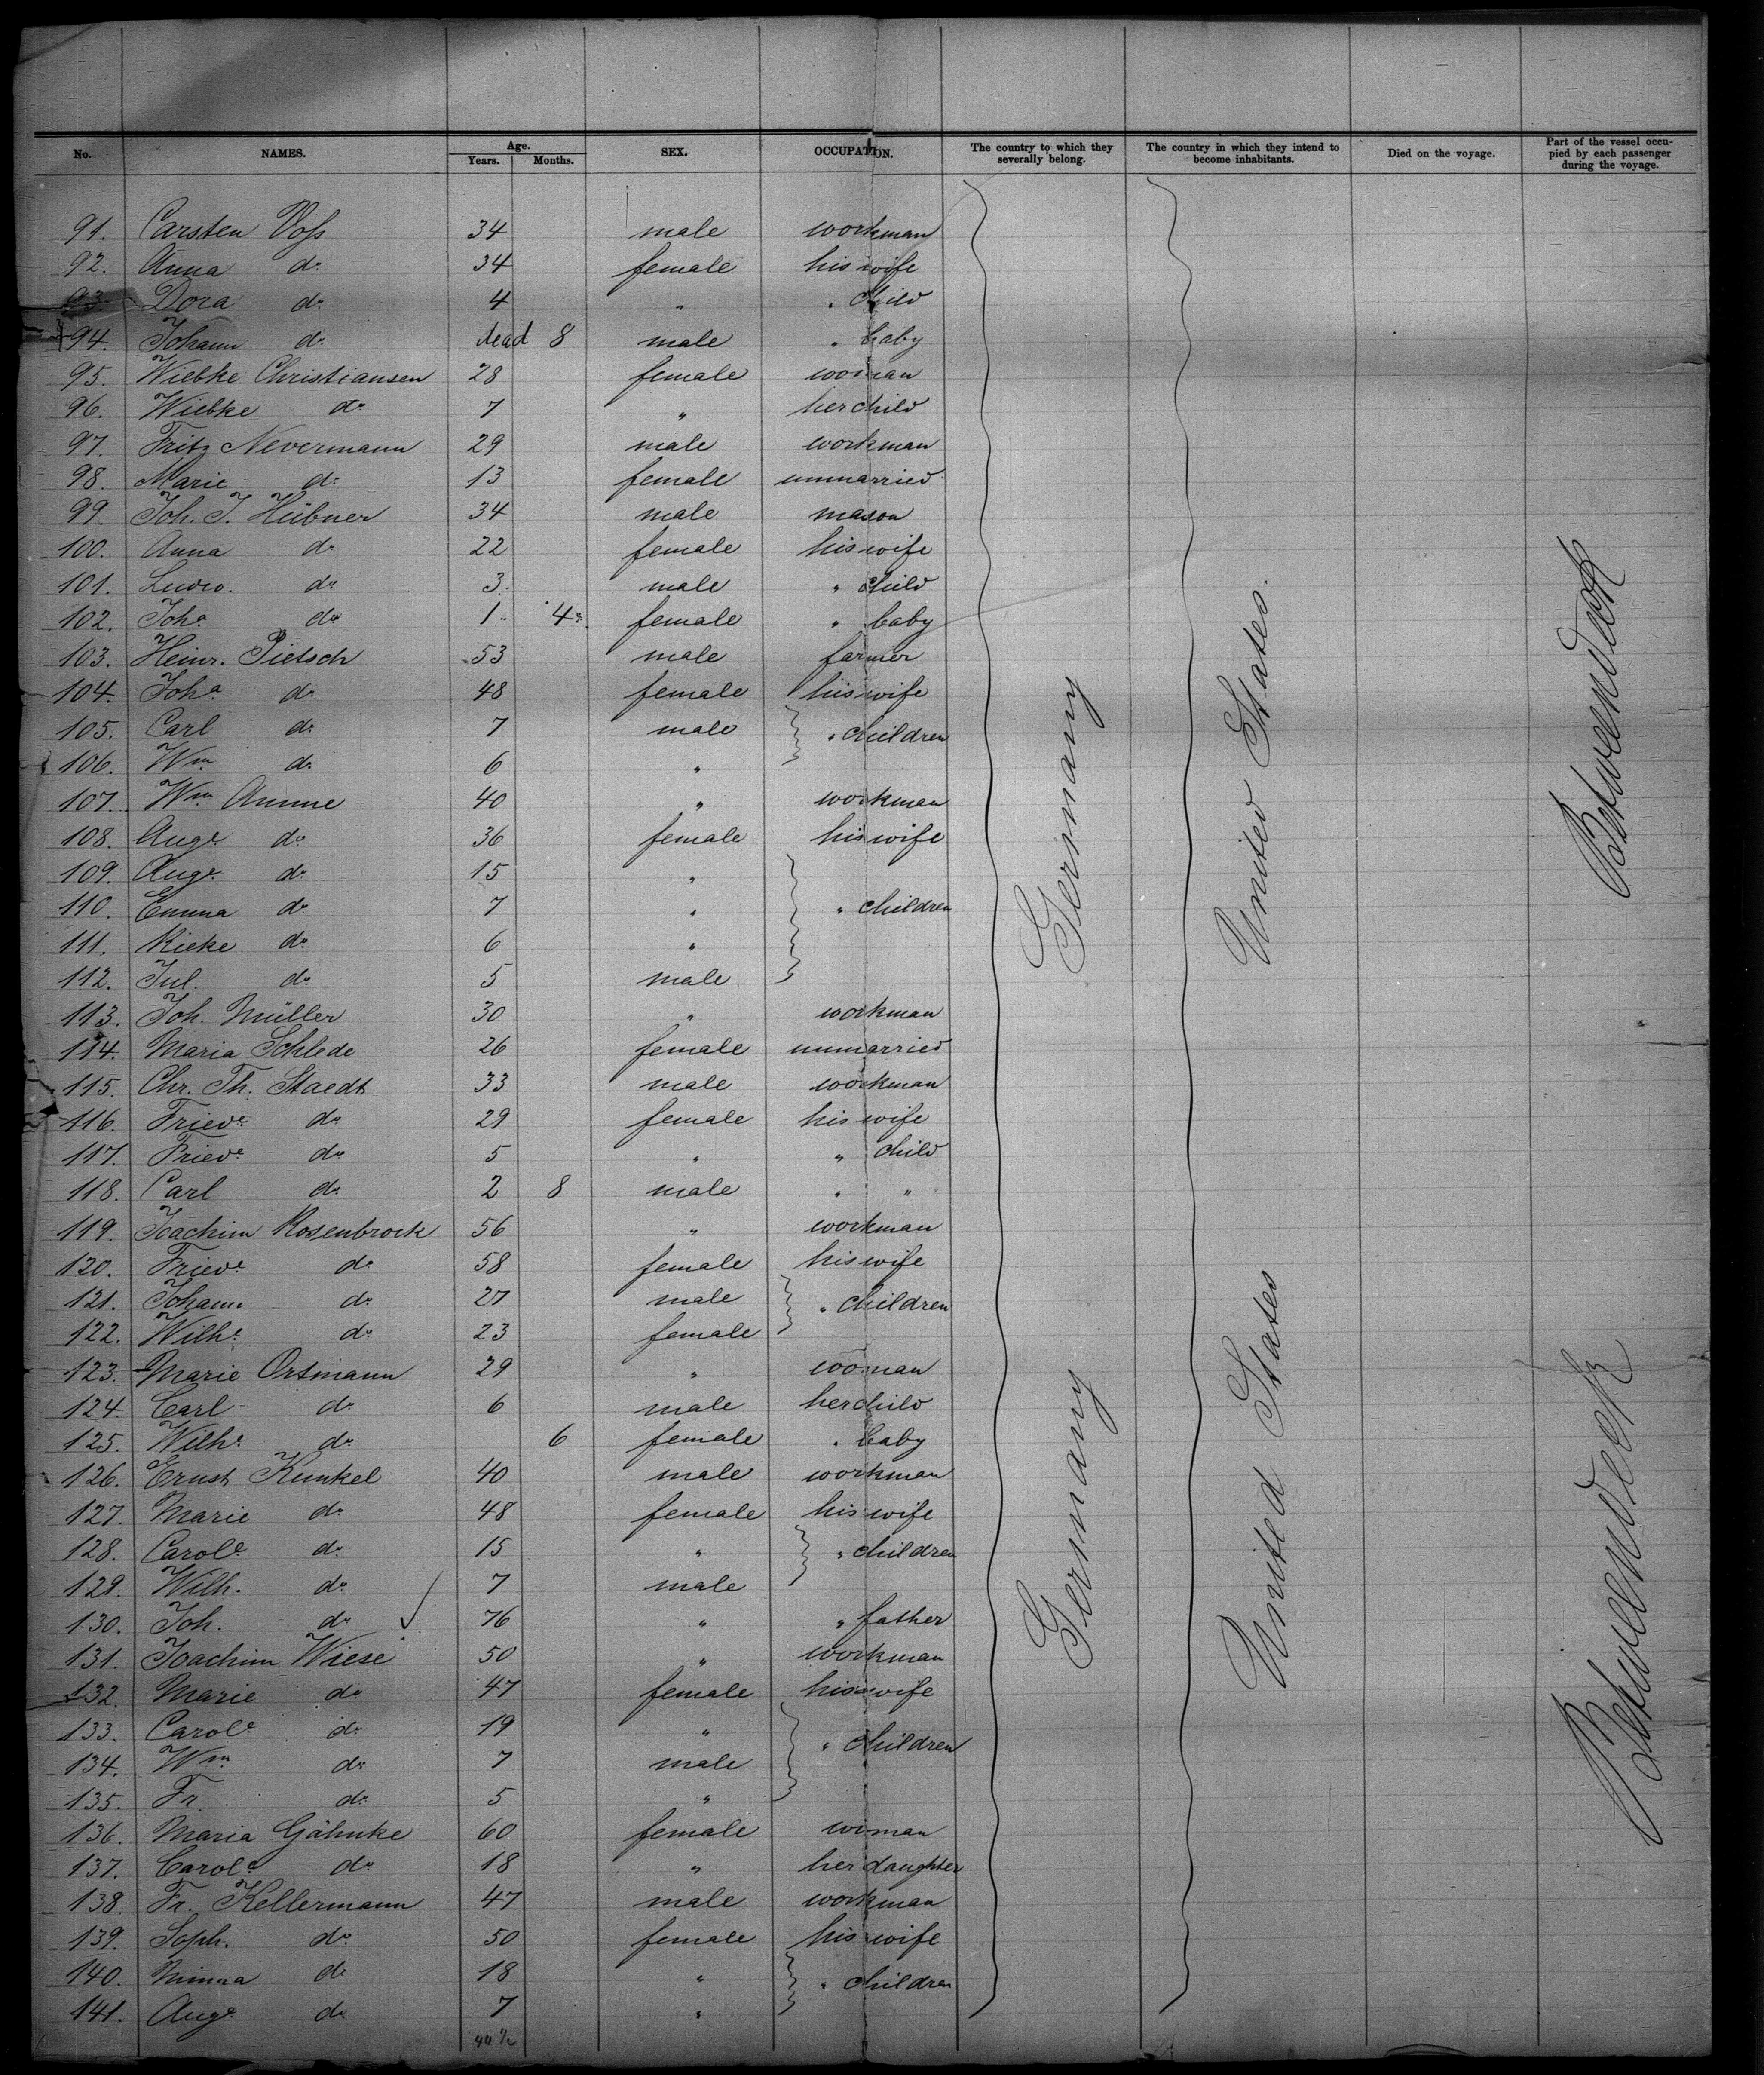 No. NAMES. Age. Years. Months. SEX. OCCUPATION. The country to which they severally belong. The country in which they intend to become inhabitants. Died on the voyage. Part of the vessel occupied by each passenger during the voyage.
91. Carsten Voſs 34 male workman
92. Anna do 34 female his wife
93. Dora do 4 " " child
94. Johann do dead 8 male " baby
95. Wiebke Christiansen 28 female woman
96. Wiebke do 7 " her child
97. Fritz Nevermann 29 male workman
98. Marie do 13 female unmarried
99. Joh. J. Hübner 34 male mason
100. Anna do 22 female his wife
101. Ludw. do 3 male " child
102. Joha do 1 4 female " baby
103. Heinr. Pietsch 53 male farmer
104. Joha do 48 female his wife
105. Carl do 7 male " children
106. Wm do 6 "
107. Wm Aumne 40 " workman
108. Auge do 36 female his wife
109. Auge do 15 "
110. Emma do 7 " " children
111. Rieke do 6 "
112. Jul. do 5 male
113. Joh. Müller 30 " workman
114. Maria Schlede 26 female unmarried
115. Chr. Th. Staedt 33 male workman
116. Friede do 29 female his wife
117. Friede do 5 " " child
118. Carl do 2 8 male " "
119. Joachim Rosenbrock 56 " workman
120. Friede do 58 female his wife
121. Johann do 27 male " children
122. Wilhe do 23 female
123. Marie Ortmann 29 " woman
124. Carl do 6 male her child
125. Wilhe do 6 female " baby
126. Ernst Kunkel 40 male workman
127. Marie do 48 female his wife
128. Carole do 15 " " children
129. Wilh. do 7 male
130. Joh. do 76 " " father
131. Joachim Wiese 50 " workman
132. Marie do 47 female his wife
133. Carole do 19 " " children
134. Wm do 7 male
135. Fr. do 5 "
136. Maria Gähnke 60 female woman
137. Carole do 18 " her daughter
138. Fr. Kellermann 47 male workman
139. Soph. do 50 female his wife
140. Minna do 18 " " children
141. Auge do 7 "
Germany
United States.
Betweendeck
Germany
United States
Betweendeck